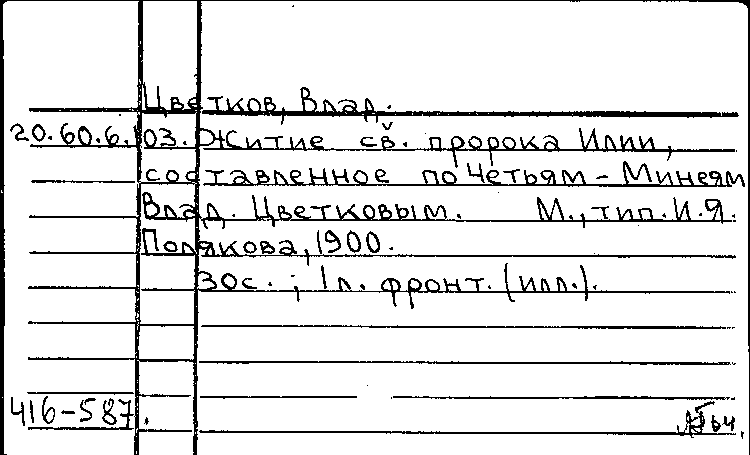 Цветков, Влад.
20.60.6.103. Житие св. пророка Илии,
составленное по Четьям - Минеям
Влад. Цветковым. М., тип. И.Я.
Полякова, 1900.
30с. ; 1л. фронт. (илл.).
416-587.